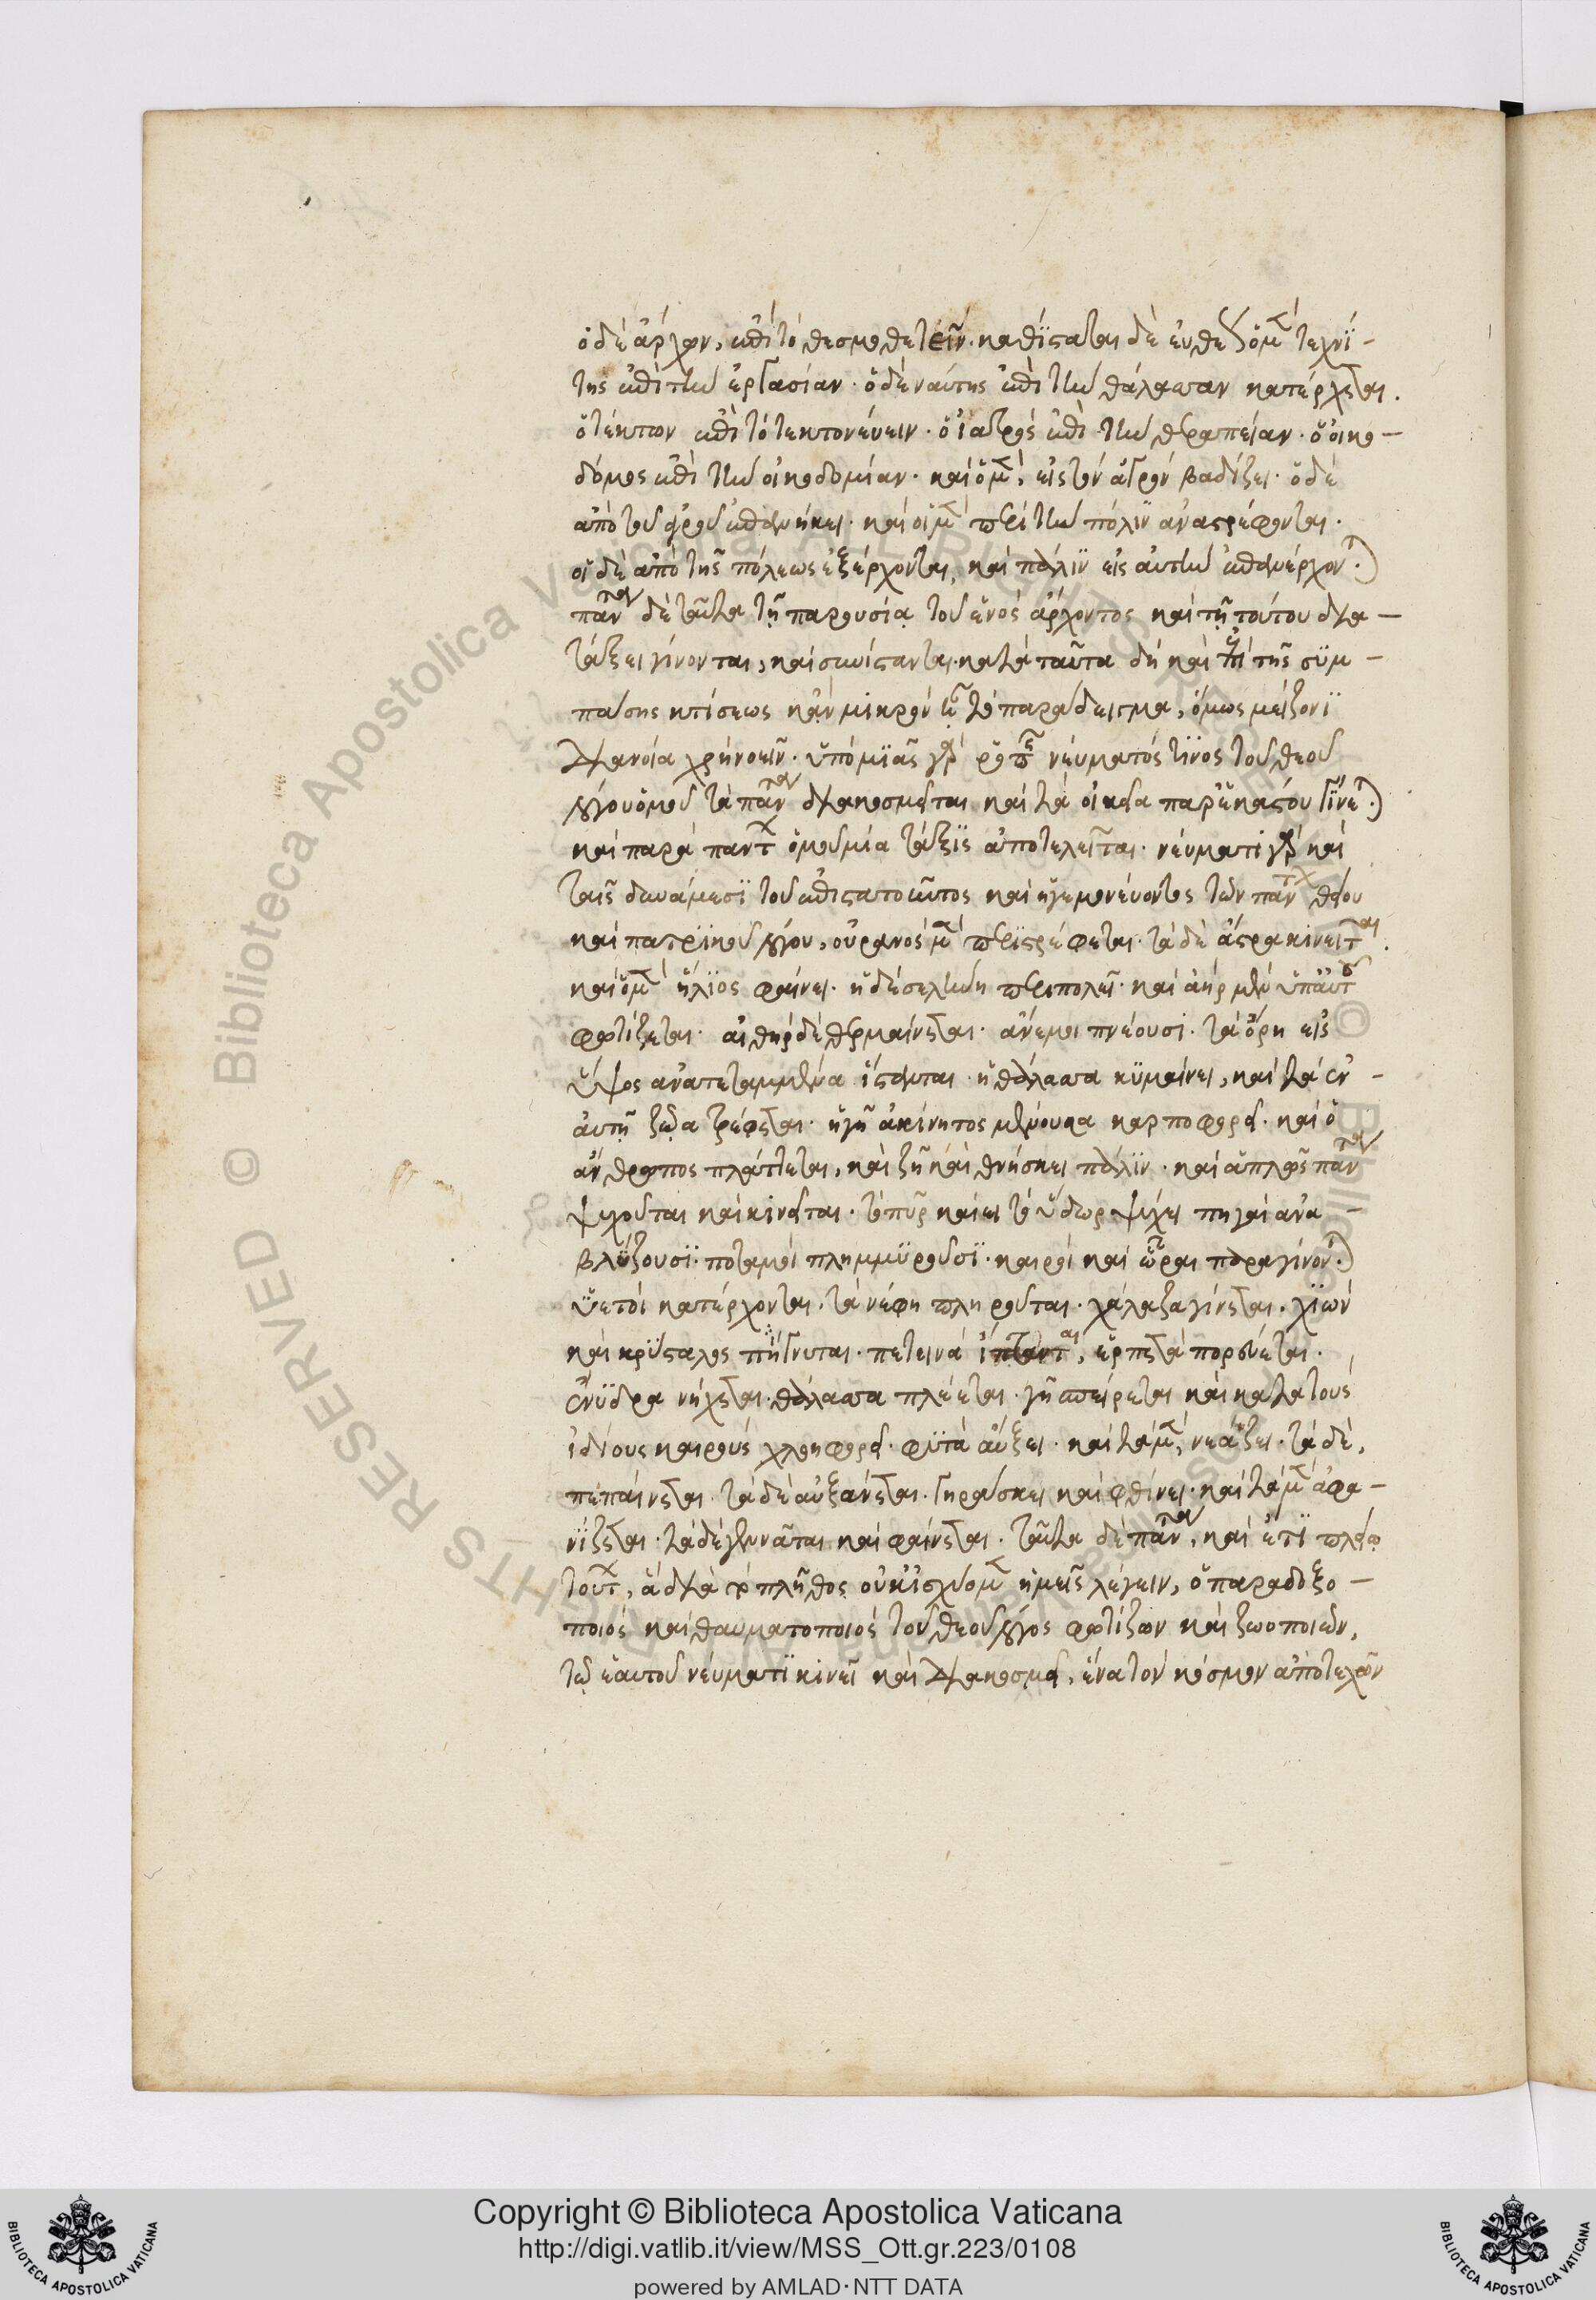 ὁ δὲ ἄρχων, ἐπὶ τὸ θεσμοθετεῖν. καθίσταται δὲ εὐθὺς ὁ μὲν τεχνί-
της ἐπὶ τὴν ἐργασίαν. ὁ δὲ ναύτης ἐπὶ τὴν θάλασσαν κατέρχεται.
ὁ τέκτων ἐπὶ τὸ τεκτονεύειν. ὁ ἰατρὸς ἐπὶ τὴν θεραπείαν. ὁ οἰκο-
δόμος ἐπὶ τὴν οἰκοδομίαν. καὶ ὁ μὲν, εἰς τὸν ἀγρὸν βαδίζει. ὁ δὲ
ἀπὸ τοῦ ἀγροῦ ἐπανήκει. καὶ οἱ μὲν περὶ τὴν πόλιν ἀναστρέφονται.
οἱ δὲ ἀπὸ τῆς πόλεως ἐξέρχονται, καὶ πάλιν εἰς αὐτὴν ἐπανέρχονται.
πάντα δὲ ταῦτα τῇ παρουσίᾳ τοῦ ἑνὸς ἄρχοντος καὶ τῇ τούτου δια-
τάξει γίνονται, καὶ συνίστανται. κατὰ ταῦτα δὴ καὶ ἐπὶ τῆς συμ-
πάσης κτίσεως κἂν μικρὸν ᾖ τὸ παράδειγμα, ὅμως μείζονι
διανοίᾳ χρὴ νοεῖν. ὑπὸ μιᾶς γὰρ ῥοπῆς νεύματός τινος τοῦ θεοῦ
λόγου ὁμοῦ τὰ πάντα διακοσμεῖται καὶ τὰ οἰκεῖα παρ' ἑκάστου γίνεται.
καὶ παρὰ πάντων ὁμοῦ μία τάξις ἀποτελεῖται. νεύματι γὰρ καὶ
ταῖς δυνάμεσι τοῦ ἐπιστατοῦντος καὶ ἡγεμονεύοντος τῶν πάντων θείου
καὶ πατρικοῦ λόγου, οὐρανὸς μὲν περιστρέφεται. τὰ δὲ ἄστρα κινεῖται.
καὶ ὁ μὲν ἥλιος φαίνει. ἡ δὲ σελήνη περιπολεῖ. καὶ ἀὴρ μὲν ὑπ' αὐτοῦ
φωτίζεται. αἰθὴρ δὲ θερμαίνεται. ἄνεμοι πνέουσι. τὰ ὄρη εἰς
ὕψος ἀνατεταμμένα ἵστανται. ἡ θάλασσα κυμαίνει, καὶ τὰ ἐν-
αὐτῇ ζῷα τρέφεται. ἡ γῆ ἀκίνητος μένουσα καρποφορεῖ. καὶ ὁ
ἄνθρωπος πλάττεται, καὶ ζῇ καὶ θνήσκει πάλιν. καὶ ἁπλῶς πάντα
ψυχοῦται καὶ κινεῖται. τὸ πῦρ καίει τὸ ὕδωρ ψύχει πηγαὶ ἀνα-
βλύζουσι. ποταμοὶ πλημμυροῦσι. καιροὶ καὶ ὧραι παραγίνονται.
ὑετοὶ κατέρχονται. τὰ νέφη πληροῦται. χάλαζα γίνεται. χιὼν
καὶ κρύσταλος πήγνυται. πετεινὰ ἵπτανται, ἑρπετὰ πορεύεται.
ἔνυδρα νήχεται. θάλασσα πλέεται. γῆ σπείρεται καὶ κατὰ τοὺς
ἰδίους καιροὺς χλοηφορεῖ. φυτὰ αὔξει. καὶ τὰ μὲν, νεάζει. τὰ δὲ,
πεπαίνεται. τὰ δὲ αὐξάνεται. γηράσκει καὶ φθίνει. καὶ τὰ μὲν ἀφα-
νίζεται. τὰ δὲ γεννᾶται καὶ φαίνεται. ταῦτα δὲ πάντα, καὶ ἔτι πλείω
τούτων, ἃ διὰ τὸ πλῆθος οὐκ ἰσχύομεν ἡμεῖς λέγειν, ὁ παραδοξο-
ποιὸς καὶ θαυματοποιὸς τοῦ θεοῦ λόγος φωτίζων καὶ ζωοποιῶν,
τῷ ἑαυτοῦ νεύματι κινεῖ καὶ διακοσμεῖ, ἕνα τὸν κόσμον ἀποτελῶν